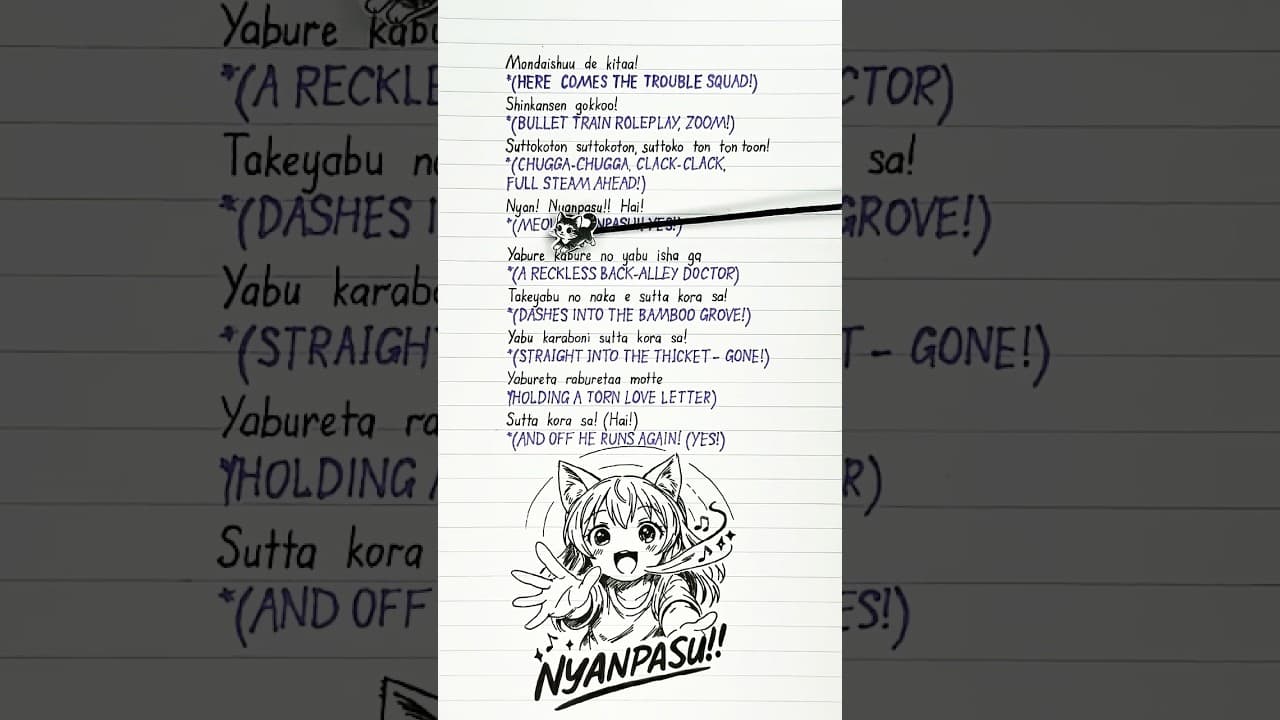 Mondaishuu de kitaa!
*(HERE COMES THE TROUBLE SQUAD!)
Shinkansen gokkoo!
*(BULLET TRAIN ROLEPLAY, ZOOM!)
Suttokoton suttokoton, suttoko ton ton toon!
*(CHUGGA-CHUGGA, CLACK-CLACK,
FULL STEAM AHEAD!)
Nyan! Nyanpasu!! Hai!
YES!)
Yabure kabure no yabu isha ga
*(A RECKLESS BACK-ALLEY DOCTOR)
Takeyabu no naka e sutta kora sa!
*(DASHES INTO THE BAMBOO GROVE!)
Yabu karaboni sutta kora sa!
*(STRAIGHT INTO THE THICKET – GONE!)
Yabureta raburetaa motte
*(HOLDING A TORN LOVE LETTER)
Sutta kora sa! (Hai!)
*(AND OFF HE RUNS AGAIN! (YES!)
NYANPASU!!